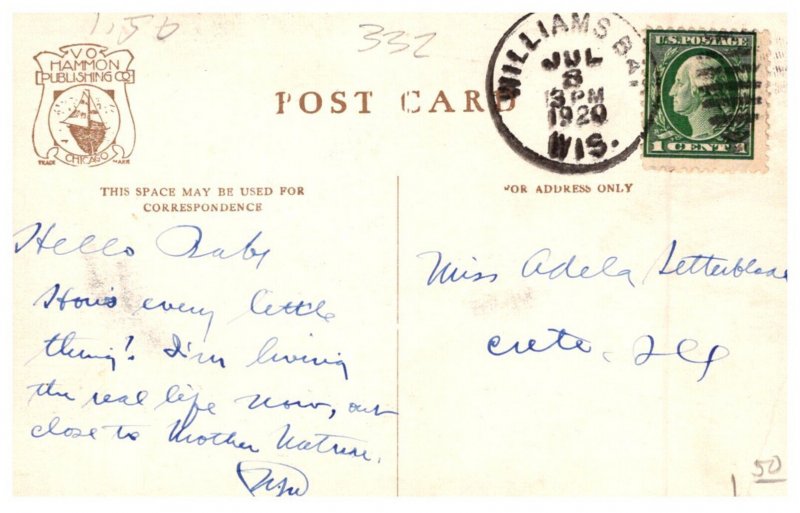 1.50
332
V.O.
HAMMON
PUBLISHING CO
TRADE MARK
CHICAGO
POST CARD
WILLIAMS BAY
JUL
8
3 PM
1920
WIS.
U.S. POSTAGE
1 CENT 1
THIS SPACE MAY BE USED FOR
CORRESPONDENCE
FOR ADDRESS ONLY
Hello Baby
How's every little
thing? I'm living
the real life now, out
close to Mother Nature.
Miss Adela
Crete, Ill
50